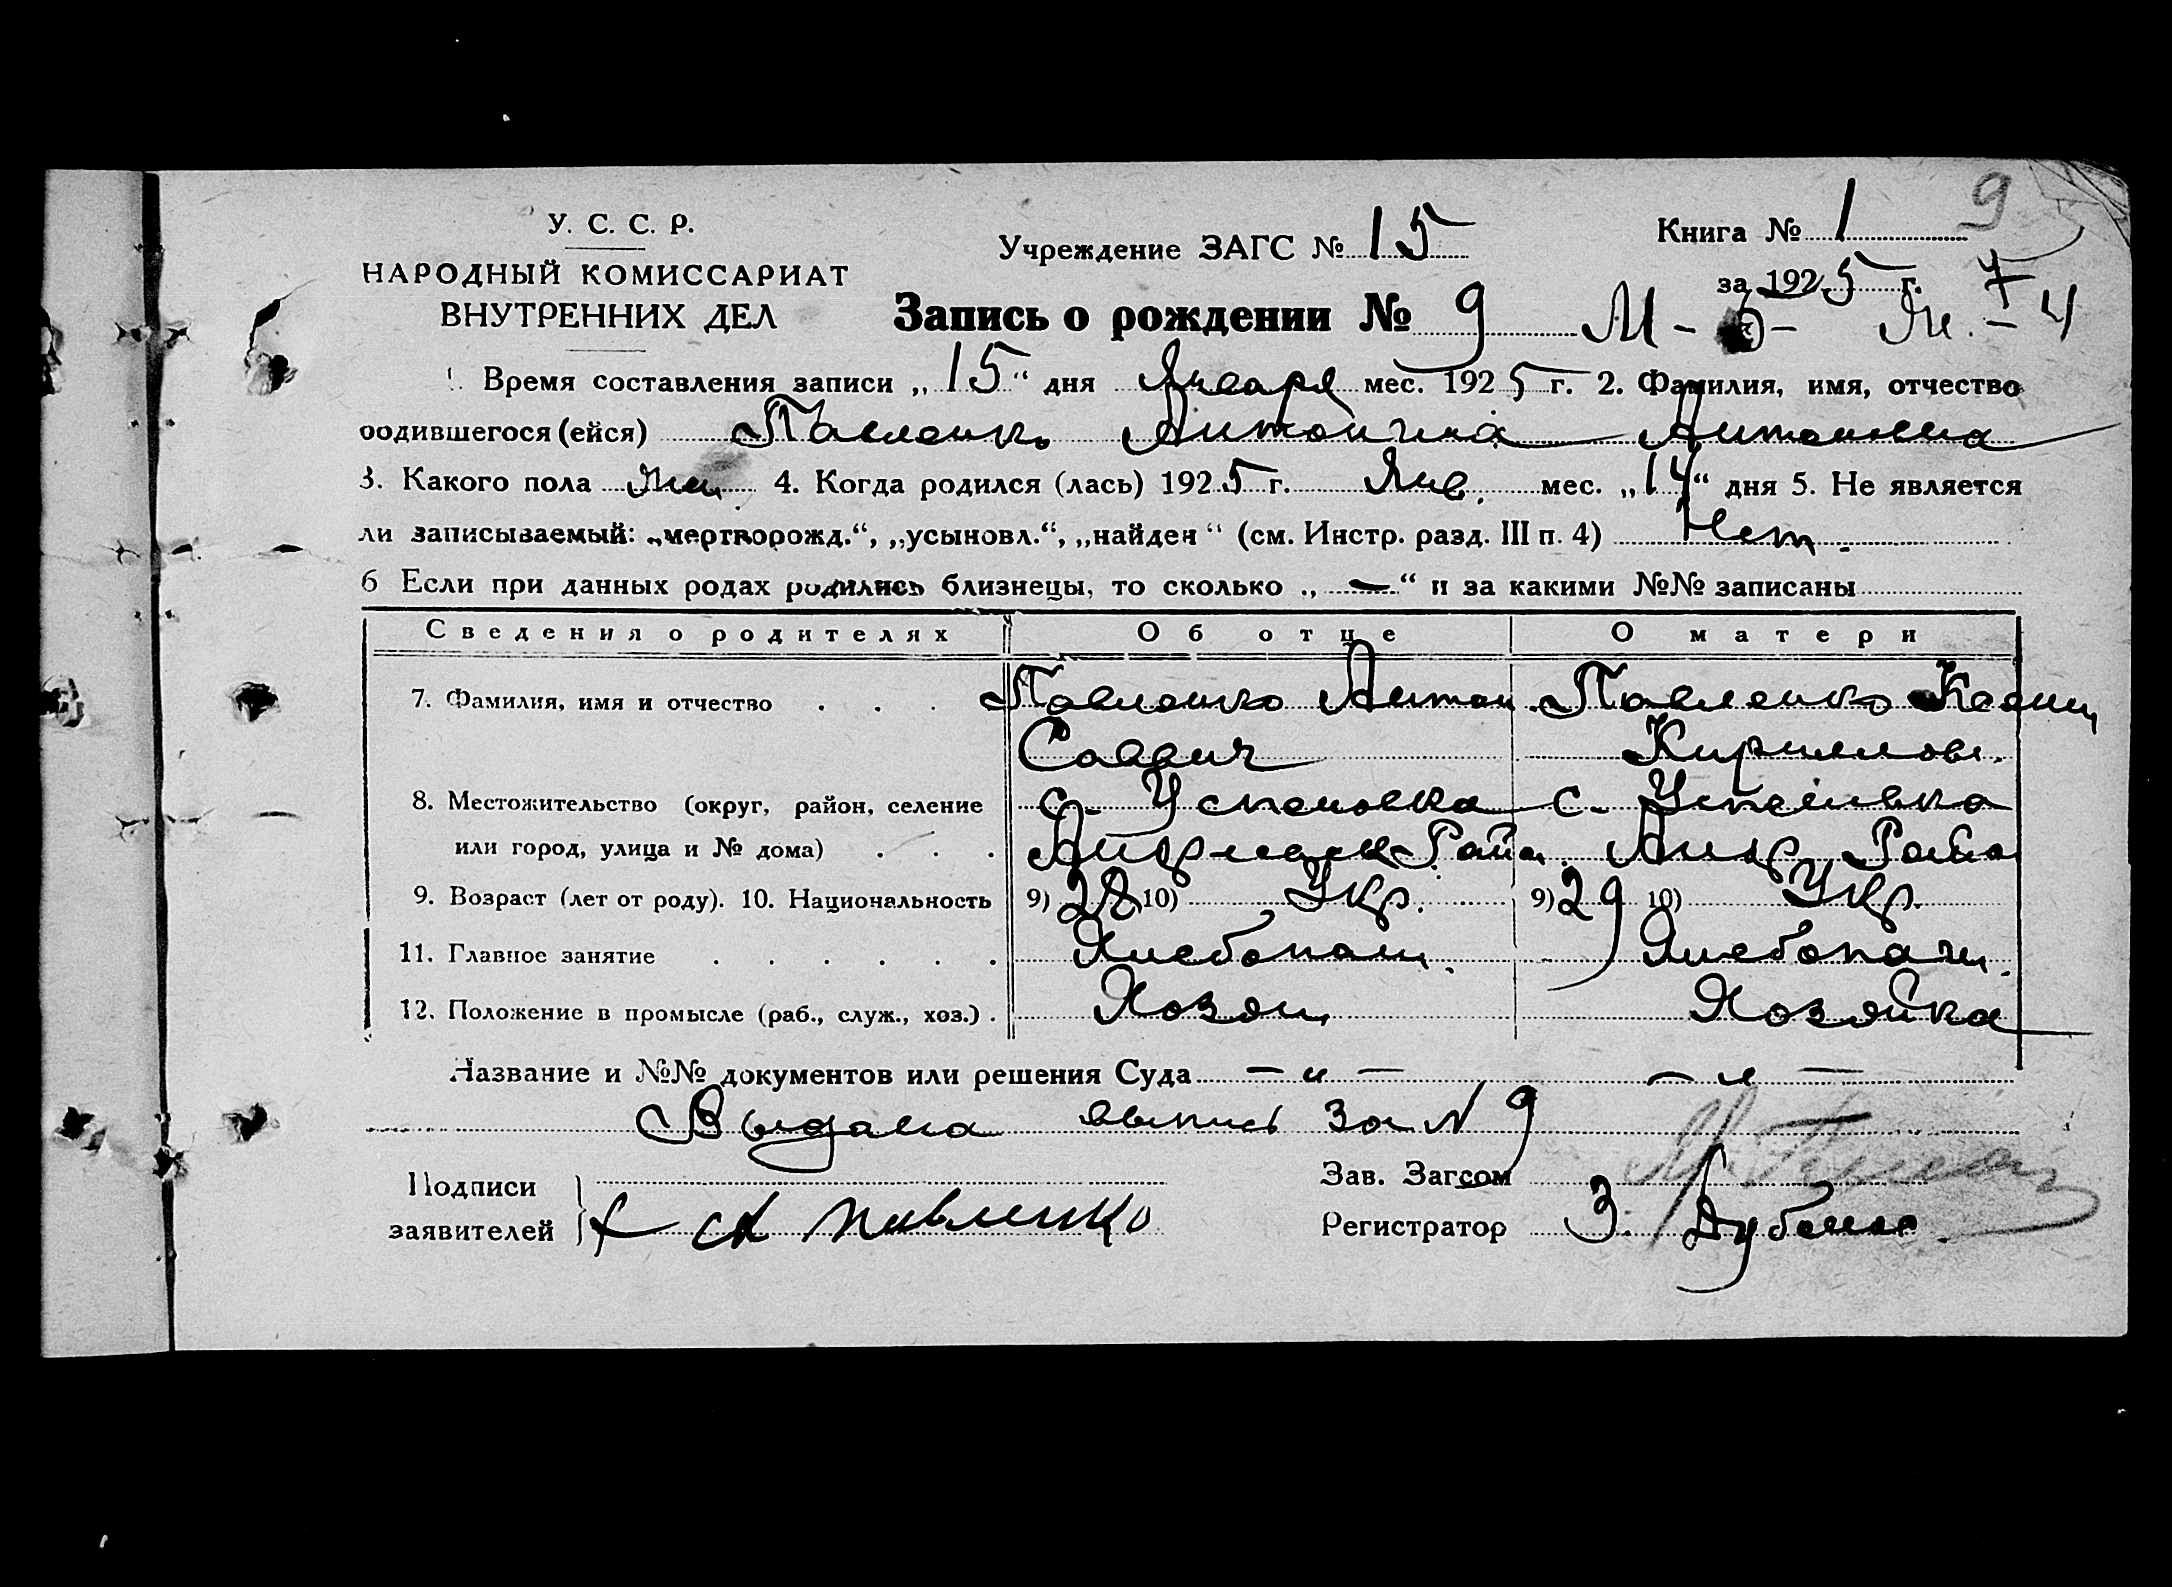 У. С. С. Р.
НАРОДНЫЙ КОМИССАРИАТ
ВНУТРЕННИХ ДЕЛ
Учреждение ЗАГС № 15
Книга № 1
9
за 1925 г.
7
Запись о рождении № 9 М - 5 - Ж. - 4
1. Время составления записи „15“ дня Января мес. 1925 г. 2. Фамилия, имя, отчество
родившегося (ейся) Павленко Антонина Антоновна
3. Какого пола Жен. 4. Когда родился (лась) 1925 г. Янв. мес. „14“ дня 5. Не является
ли записываемый: „мертворожд.“, „усыновл.“, „найден“ (см. Инстр. разд. III п. 4) Нет.
6 Если при данных родах родились близнецы, то сколько „—“ и за какими №№ записаны
Сведения о родителях Об отце О матери
7. Фамилия, имя и отчество . . . Павленко Антон Павленко
Саввич Кириллов.
8. Местожительство (округ, район, селение с. Успеновка с. Успеновка
или город, улица и № дома) . . . Район. Района
9. Возраст (лет от роду). 10. Национальность 9) 28 10) Укр. 9) 29 10) Укр.
11. Главное занятие . . . . . . Хлебопаш. Хлебопаш.
12. Положение в промысле (раб., служ., хоз.) . Хозяин Хозяйка
Название и №№ документов или решения Суда — и — — и —
Выдана выпись за № 9
Подписи
заявителей } А Павленко
Зав. Загсом
Регистратор З.